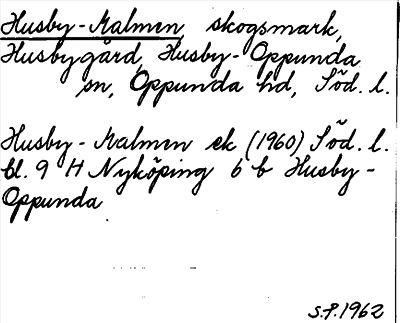 Husby-Malmen, skogsmark,
Husbygård, Husby-Oppunda
sn, Oppunda hd, Söd. l.
Husby-Malmen ek (1960) Söd. l.
bl. 9 H Nyköping 6 b Husby-
Oppunda
S.P. 1962